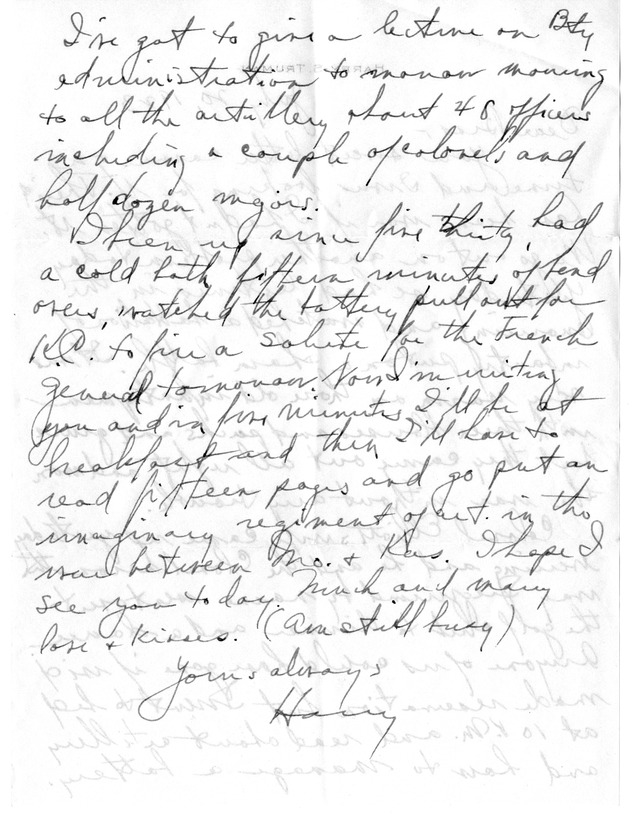 I've got to give a lecture on Bty
administration to morrow morning
to all the artillery about 48 officers
including a couple of colonels and
half dozen majors.
I been up since five thirty, had
a cold bath fifteen minutes of send
overs, watched the battery pull out for
K.C. to fire a salute for the French
general tomorrow. Now I'm writing
you and in five minutes I'll be at
breakfast and then I'll have to
read fifteen pages and go put an
imaginary regiment of art. in the
war between Mo. & Kas. I hope I
see you today. Much and many
love & kisses. (Am still busy)
Yours always
Harry